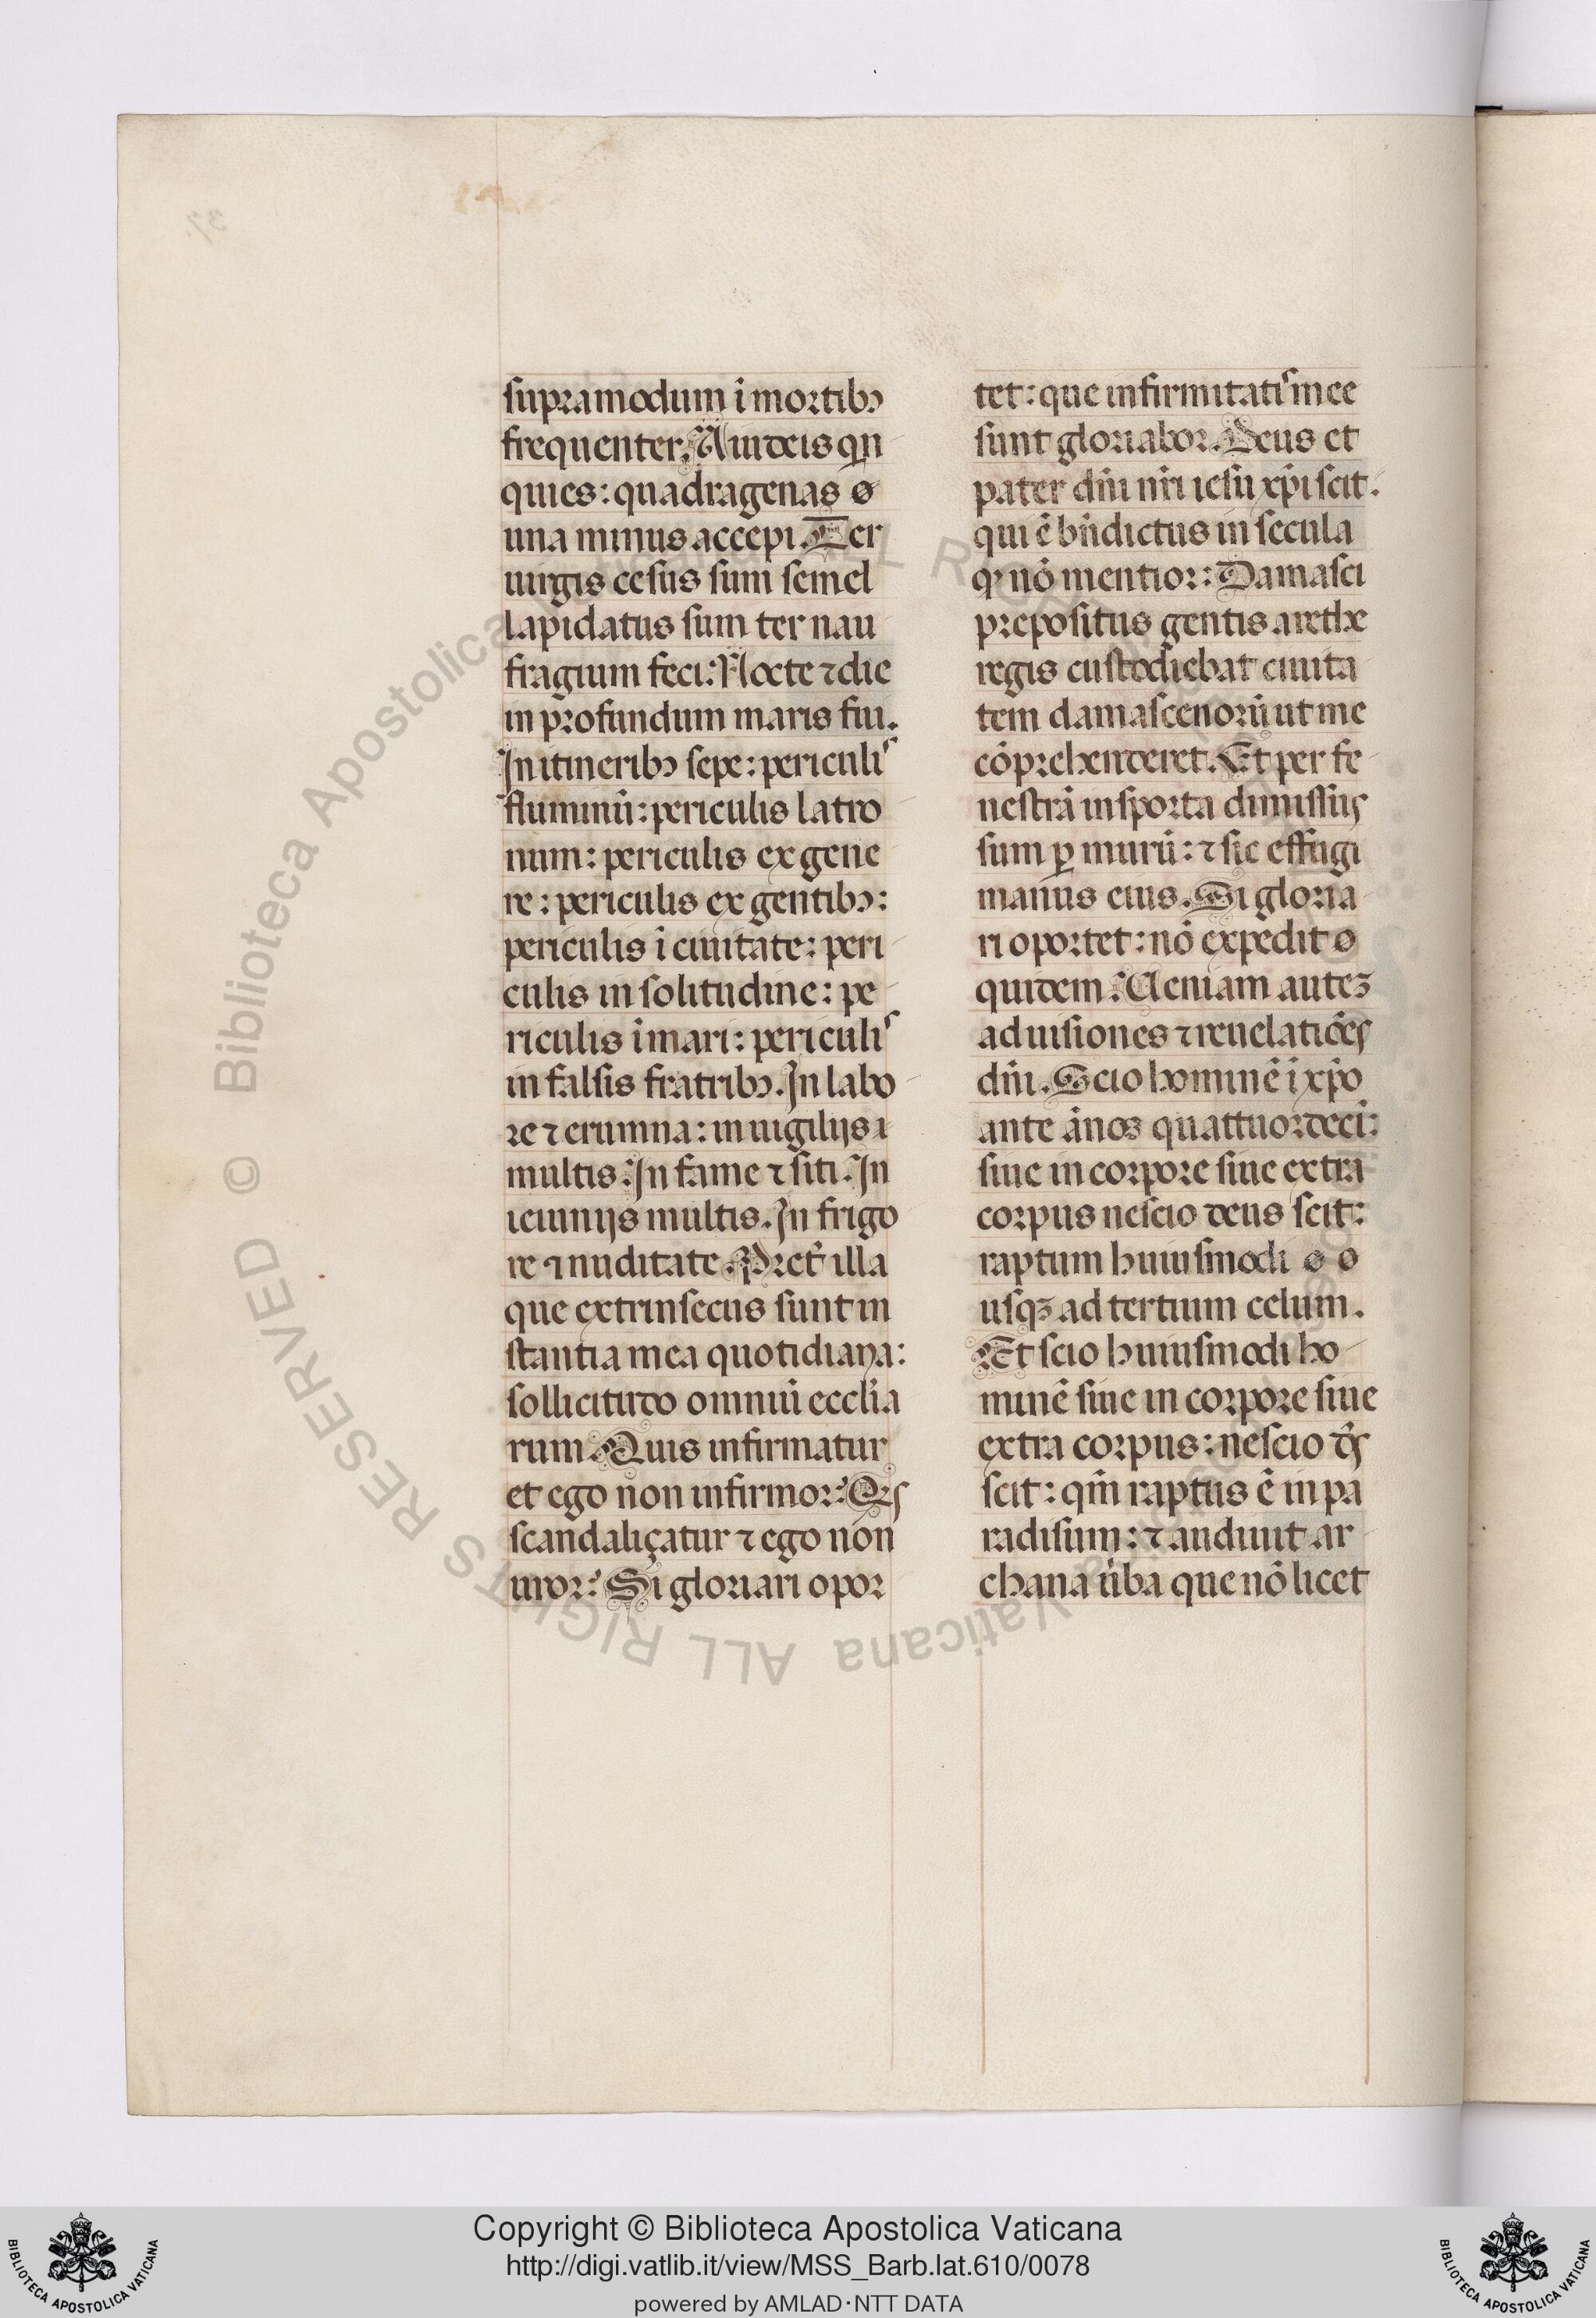 supra modum ĩ mortibꝰ
frequenter. A iudeis qn̄
quies: quadragenas ø
una minus accepi. Ter
uirgis cesus sum semel
lapidatus sum ter nau
fragium feci: Nocte ⁊ die
in profundum maris fui.
In itineribꝰ sepe: periculis
fluminũ: periculis latro
num: periculis ex gene
re: periculis ex gentibꝰ:
periculis ĩ ciuitate: peri
culis in solitudine: pe
riculis ĩ mari: periculis
in falsis fratribꝰ. In labo
re ⁊ erumna: in uigilijs ı
multis. In fame ⁊ siti. In
ieiunijs multis. In frigo
re ⁊ nuditate. Pret̾ illa
que extrinsecus sunt in
stantia mea quotidiana:
sollicitudo omniũ eccl̃ia
rum. Quis infirmatur
et ego non infirmor: Qs
scandaliçatur ⁊ ego non
uror: Si gloriari opor
tet: que infirmitatis mee
sunt gloriabor. Deus et
pater dñi nr̃i iesu xp̃i scit.
qui ẽ bñdictus in secula
qꝛ nõ mentior: Damasci
prepositus gentis arethe
regis custodiebat ciuita
tem damascenorũ ut me
cõprehenderet. Et per fe
nestrã in sporta dimissus
sum ꝑ murũ: ⁊ sic effugi
manus eius. Si gloria
ri oportet: nõ expedit o
quidem. Ueniam autẽ
ad uisiones ⁊ reuelatiões
dñi. Scio hominẽ ĩ xp̃o
ante ãnos quattuordeci:
siue in corpore siue extra
corpus nescio deus scit:
raptum huiusmodi ø o
usqꝫ ad tertium celum.
Et scio huiusmodi ho
minẽ siue in corpore siue
extra corpus: nescio ds̃
scit: qm̃ raptus ẽ in pa
radisum: ⁊ audiuit ar
chana ũba que nõ licet
© Biblioteca Apostolica Vaticana ALL RIGHTS RESERVED
Copyright © Biblioteca Apostolica Vaticana
http://digi.vatlib.it/view/MSS_Barb.lat.610/0078
powered by AMLAD·NTT DATA
BIBLIOTECA APOSTOLICA VATICANA
BIBLIOTECA APOSTOLICA VATICANA